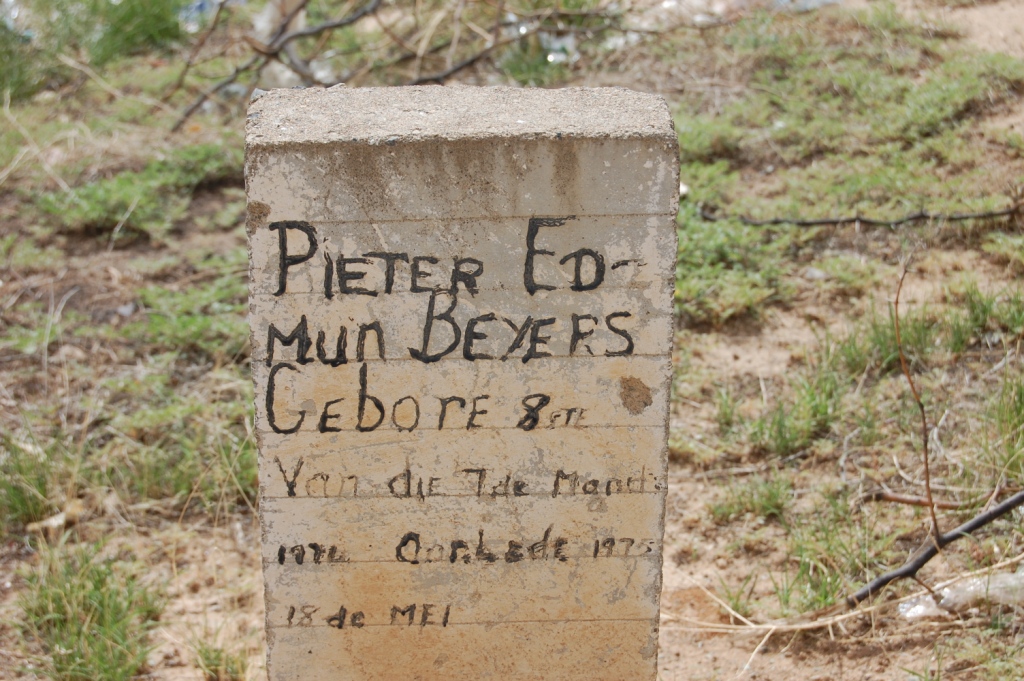 PIETER ED-
MUN BEYERS
GEBORE 8STE
Van die 7de Mand
Oorlede 1975
18 de MEI